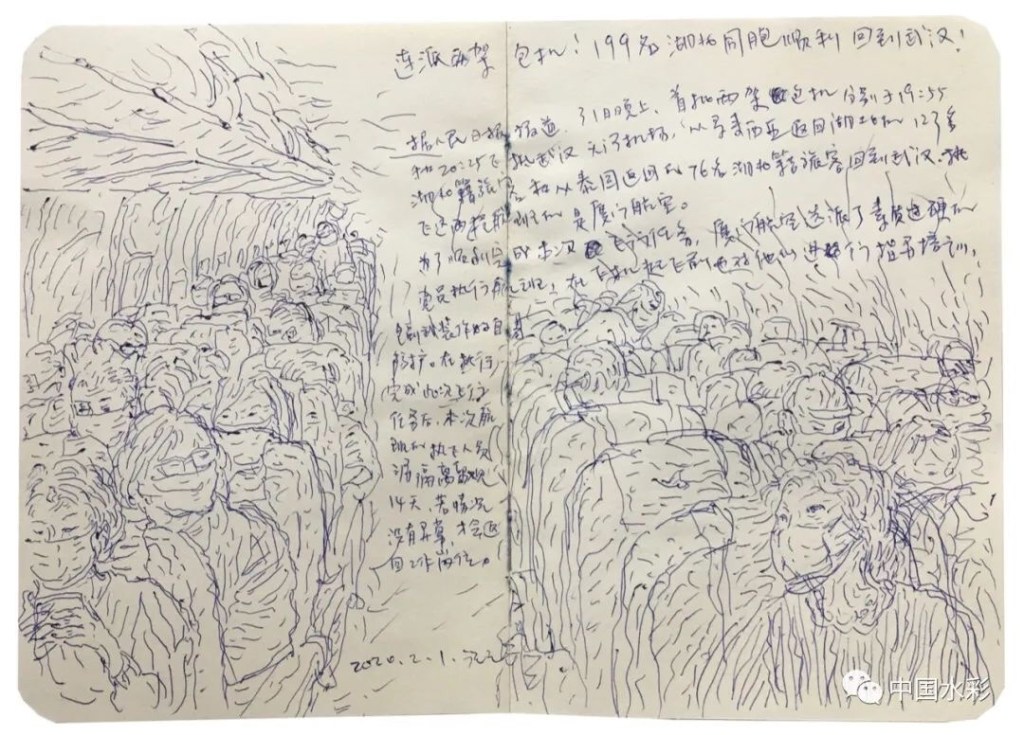 连派两架包机!199名湖北同胞顺利回到武汉!
据人民日报报道,31日晚上,首批两架包机分别于19:55
和20:25飞抵武汉天河机场,从马来西亚返回湖北的123名
湖北籍旅客和从泰国返回的76名湖北籍旅客回到武汉。执
飞这两班航班的是厦门航空。
为了顺利完成本次飞行任务,厦门航空选派了素质过硬的
党员执行航班,在包机起飞前也对他们进行指导培训,
全副武装作好自身
防护。在执行
完成此次飞行
任务后,本次航
班的执飞人员
需隔离
14天,若情况
没有异常,才会返
回工作岗位。
2020.2.1.
中国水彩